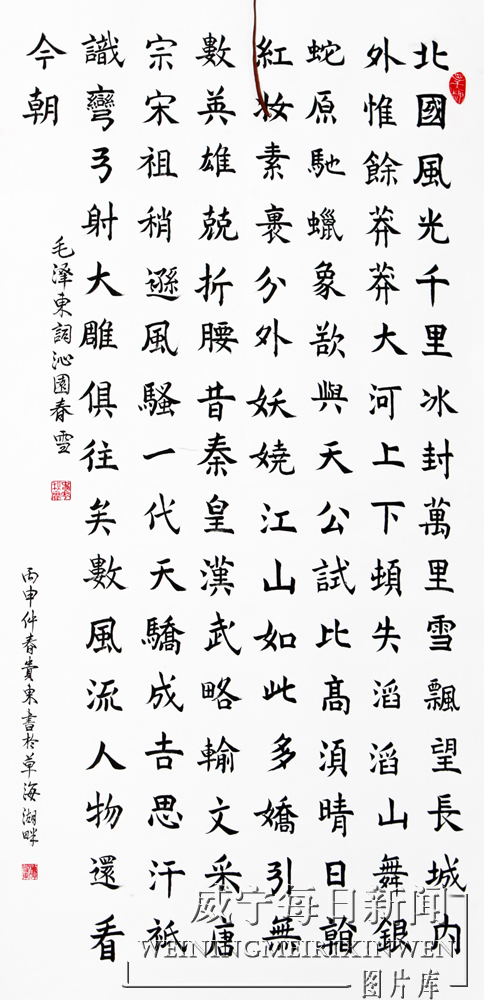 北國風光千里冰封萬里雪飄望長城内
外惟餘莽莽大河上下頓失滔滔山舞銀
蛇原馳蠟象欲與天公試比高湏晴日
紅妝素裹分外妖嬈江山如此多嬌引無
數英雄兢折腰昔秦皇漢武略輸文采唐
宗宋祖稍遜風騷一代天驕成吉思汗祗
識彎弓射大雕俱往矣數風流人物還看
今朝
毛泽東詞沁園春雪
丙申仲春貴東書於草海湖畔
威宁每日新闻
WEININGMEIRIXINWEN
图片库